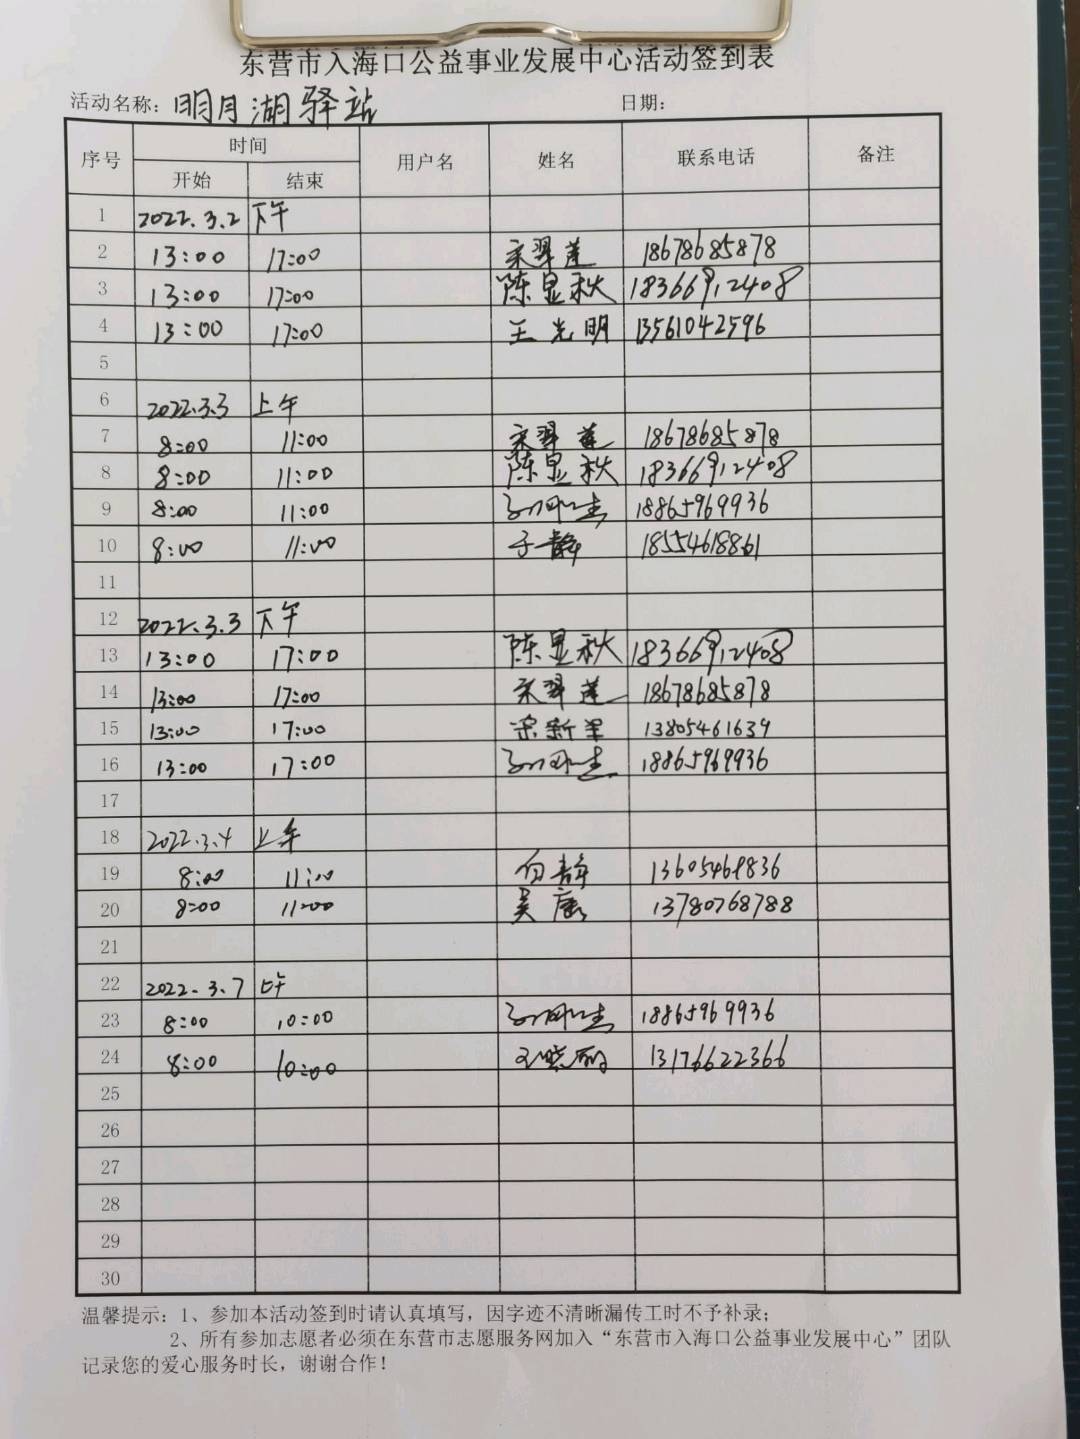 东营市入海口公益事业发展中心活动签到表
活动名称：明月湖驿站 日期：
序号 时间 用户名 姓名 联系电话 备注
开始 结束
1 2022.3.2 下午
2 13:00 17:00 宋翠莲 18678685878
3 13:00 17:00 陈显秋 18366912408
4 13:00 17:00 王光明 13561042596
5
6 2022.3.3 上午
7 8:00 11:00 宋翠莲 18678685878
8 8:00 11:00 陈显秋 18366912408
9 8:00 11:00 18865969936
10 8:00 11:00 于静 18554618861
11
12 2022.3.3 下午
13 13:00 17:00 陈显秋 18366912408
14 13:00 17:00 宋翠莲 18678685878
15 13:00 17:00 梁新军 13805461639
16 13:00 17:00 18865969936
17
18 2022.3.4 上午
19 8:00 11:00 白静 13605469836
20 8:00 11:00 吴康 13780768788
21
22 2022.3.7 上午
23 8:00 10:00 18865969936
24 8:00 10:00 王晓丽 13176622366
25
26
27
28
29
30
温馨提示：1、参加本活动签到时请认真填写，因字迹不清晰漏传工时不予补录；
2、所有参加志愿者必须在东营市志愿服务网加入“东营市入海口公益事业发展中心”团队
记录您的爱心服务时长，谢谢合作！